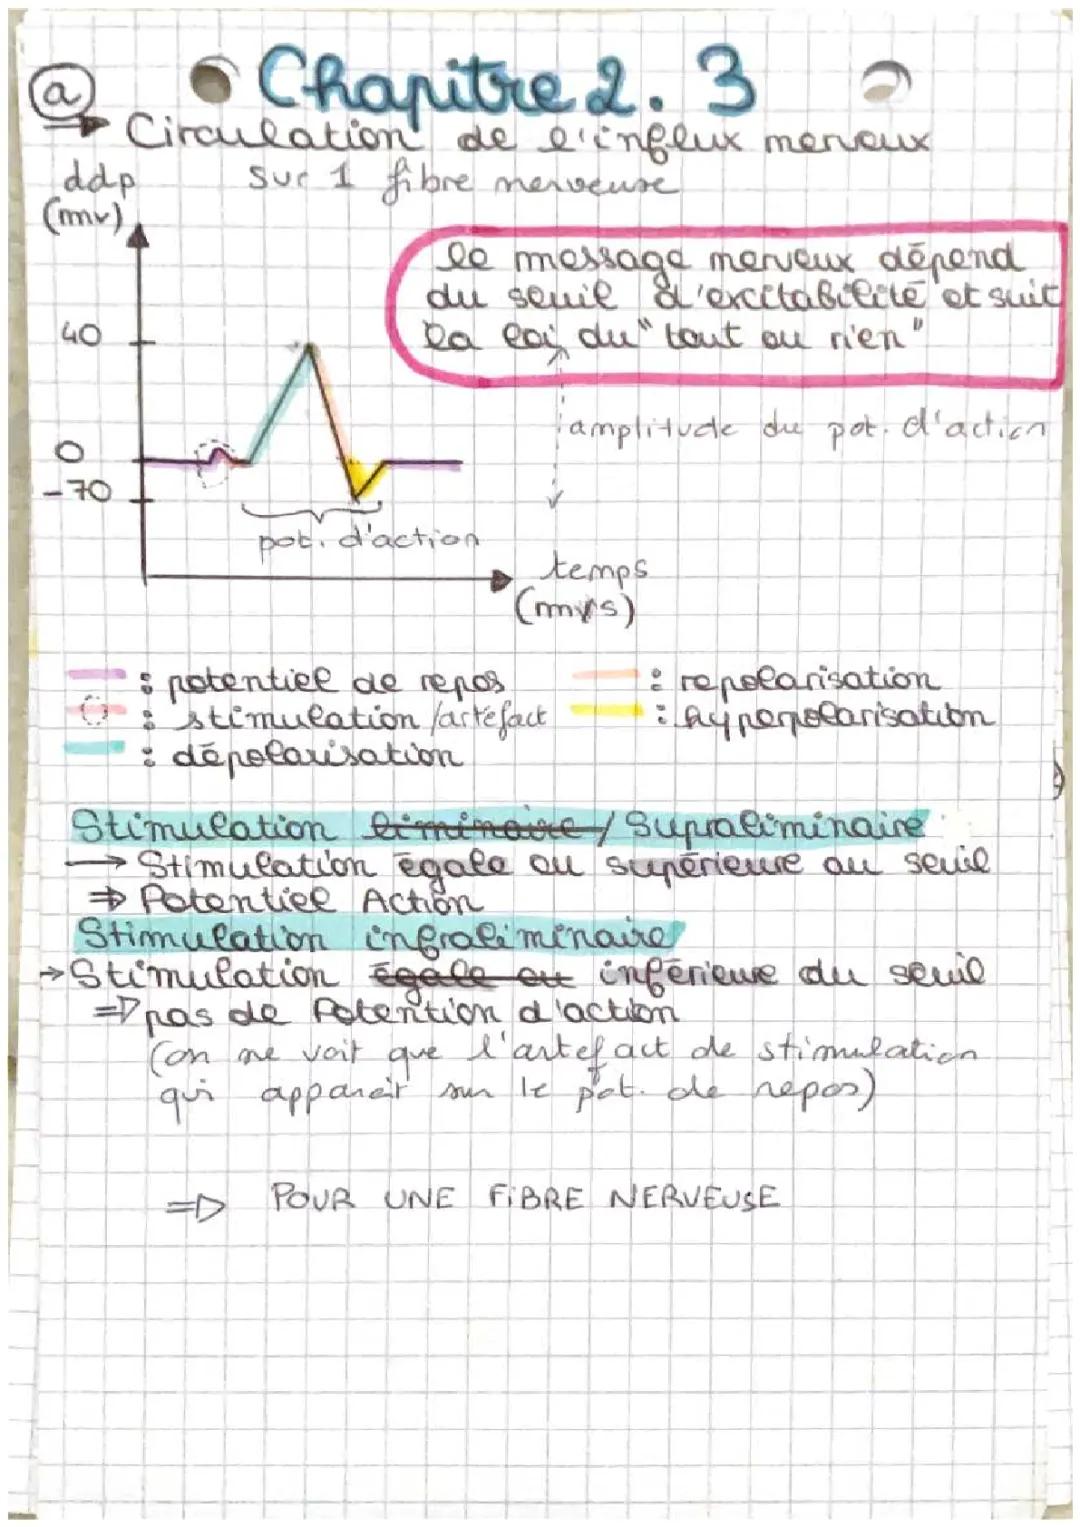 a
Chapitre 2. 3
→ Circulation de l'influx nerveux
sur 1 fibre nerveuse
ddp
(mv)
le message nerveux dépend
du seuil d'excitabilité et suit
la loi du "tout ou rien"
40
amplitude du pot. d'action
0
-70
pot. d'action
temps
(ms)
: potentiel de repos
: repolarisation
: stimulation /artéfact
: hyperpolarisation
: dépolarisation
Stimulation liminaire / Supraliminaire
→ Stimulation égale ou supérieure au seuil
⇒ Potentiel Action
Stimulation infraliminaire
→ Stimulation égale ou inférieure du seuil
⇒ pas de Potention d'action
(on ne voit que l'artefact de stimulation
qui apparaît sur le pot. de repos)
⇒ POUR UNE FIBRE NERVEUSE